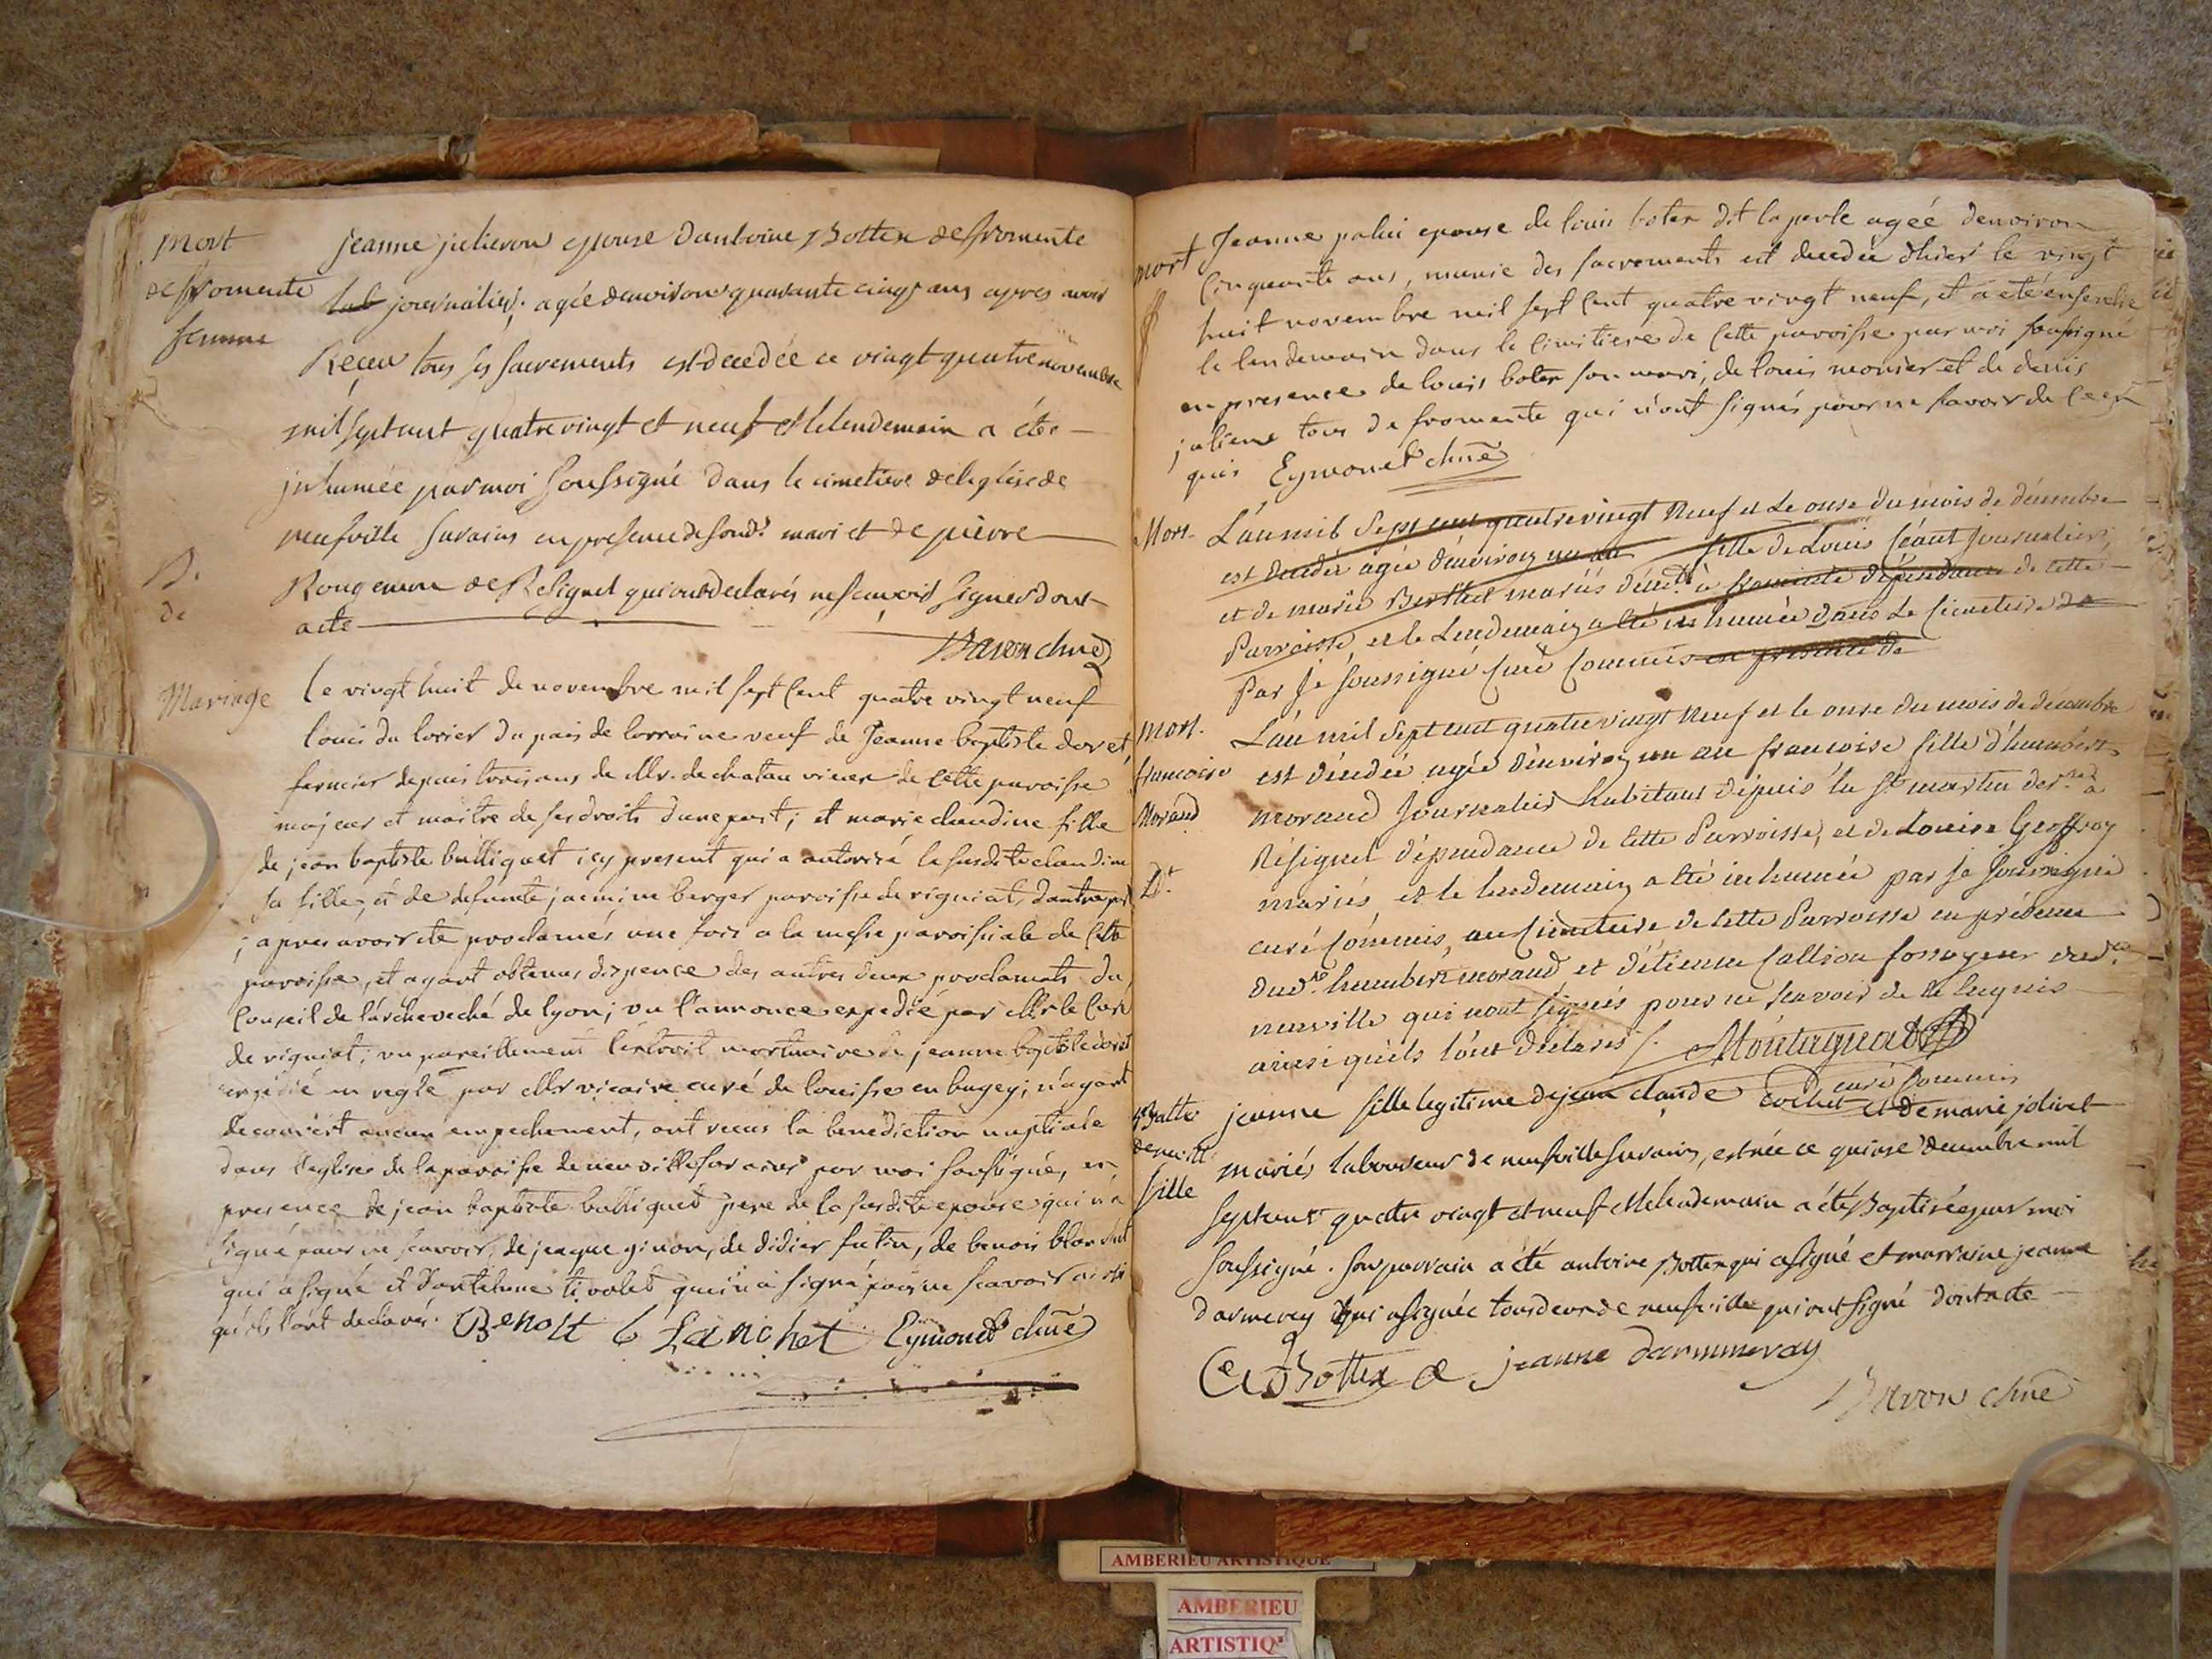 mort
de fromente
femme
jeanne julieron epouse dantoine Bottex de fromente
lab journalier; agée denviron quarante cinq ans apres avoir
Reçeu tous ses sacrements est decedée ce vingt quatre novembre
mil sept cent quatre vingt et neuf et le lendemain a étée
inhumée par moi soussigné dans le cimetiere de leglise de
neufville surains en presence de sond.t mari et de pierre
Rougemon de Resignel qui ont declarés ne scavoir signer dont
acte
Baron chne
B.
de
Mariage
le vingt huit de novembre mil sept cent quatre vingt neuf
louis du lorier du pais de lorraine veuf de Jeanne baptiste doret,
fermier depuis trois ans de Mr. de chatau vieux de cette paroisse
majeur et maitre de ses droits d'une part; et marie claudine fille
de jean baptiste bulliquet icy present qui a autorisé la susdite claudine
sa fille, et de defunte jacmine berger paroisse de rigniat, d'autre part
; apres avoir ete proclamés une fois a la messe paroissiale de cette
paroisse, et ayant obtenus dispence des autres deux proclamats du
conseil de l'archeveché de lyon; vu l'annonce expedié par Mr le Curé
de rigniat; vu pareillement l'extroit mortuaire de jeanne baptiste doret
expedié en regle par Mr vicaire curé de louisse en bugey; n'ayant
decouvert aucun empechement, ont recus la benediction nuptiale
dans l'eglise de la paroisse de neuville sur ains par moi soussigné, en
presence de jean baptiste bulliquet pere de la susdite epouse qui n'a
signé pour ne scavoir, de jacque ginon, de didier futin, de benois blanchet
qui a signé et d'antelme tivolet qui n'a signé pour ne scavoir ainsi
qu'ils l'ont declarés. Benoit blanchet Eymonet chne
mort
Jeanne palin epouse de louis botex dit la perle agéé denviron
Cinquante ans, munie des sacrements est decedée d'hier le vingt
huit novembre mil sept cent quatre vingt neuf, et a eté ensevelie
le lendemain dans le cimitiere de cette paroisse par moi soussigné
en presence de louis botex son mari, de louis monier et de denis
julien tous de fromente qui n'ont signés pour ne savoir de ce en
quis Eymonet chne
Mort.
L'an mil Sept cent quatre vingt Neuf et Le onse du mois de décembre
est decedée agée d'environ un an fille de Louis Céaut Journalier,
et de marie Berthet mariés à fromente dépendance de cette
Parroisse, et le Lendemain a été inhumée dans Le Cimetiere de
Par Je soussigné Curé Commis en presence de
mort.
francoise
Morand
L'an mil Sept cent quatre vingt Neuf et le onse du mois de decembre
est décédée agée d'environ un an françoise fille d'humbert
morand Journalier habitant depuis la St martin der.re à
Résignel dépendance de cette Parroisse, et de Louise Geoffray
mariés et le lendemain a été inhumée par Je soussigné
curé Commis, au Cimetiere de cette Parroisse en présence
dud. humbert morand et d'étienne Callion fossoyeur dud.
neuville qui n'ont signés pour ne scavoir de ce enquis
ainsi qu'ils l'ont déclarés. Montagnat
curé Commis
D.t
Batte
deneuville
fille
jeanne fille legitime de jean claude cochet et de marie jolivet
mariés laboureur de neufville surains, est née ce quinze decembre mil
sept cent quatre vingt et neuf et le lendemain a été Baptisée par moi
soussigné. son parrain a été antoine Bottex qui asigné et marraine jeanne
darmeray qui asignée tous deux de neufville qui ont signé dont acte
Bottex jeanne darmmeray
Baron chne
AMBERIEU ARTISTIQUE
AMBERIEU
ARTISTIQ